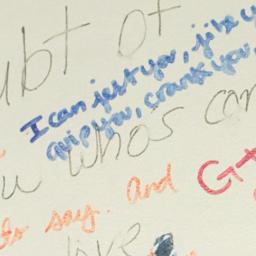 ubt of
I can jest you, jibe y
quip you, crank you,
u who's can
to say. And G
love